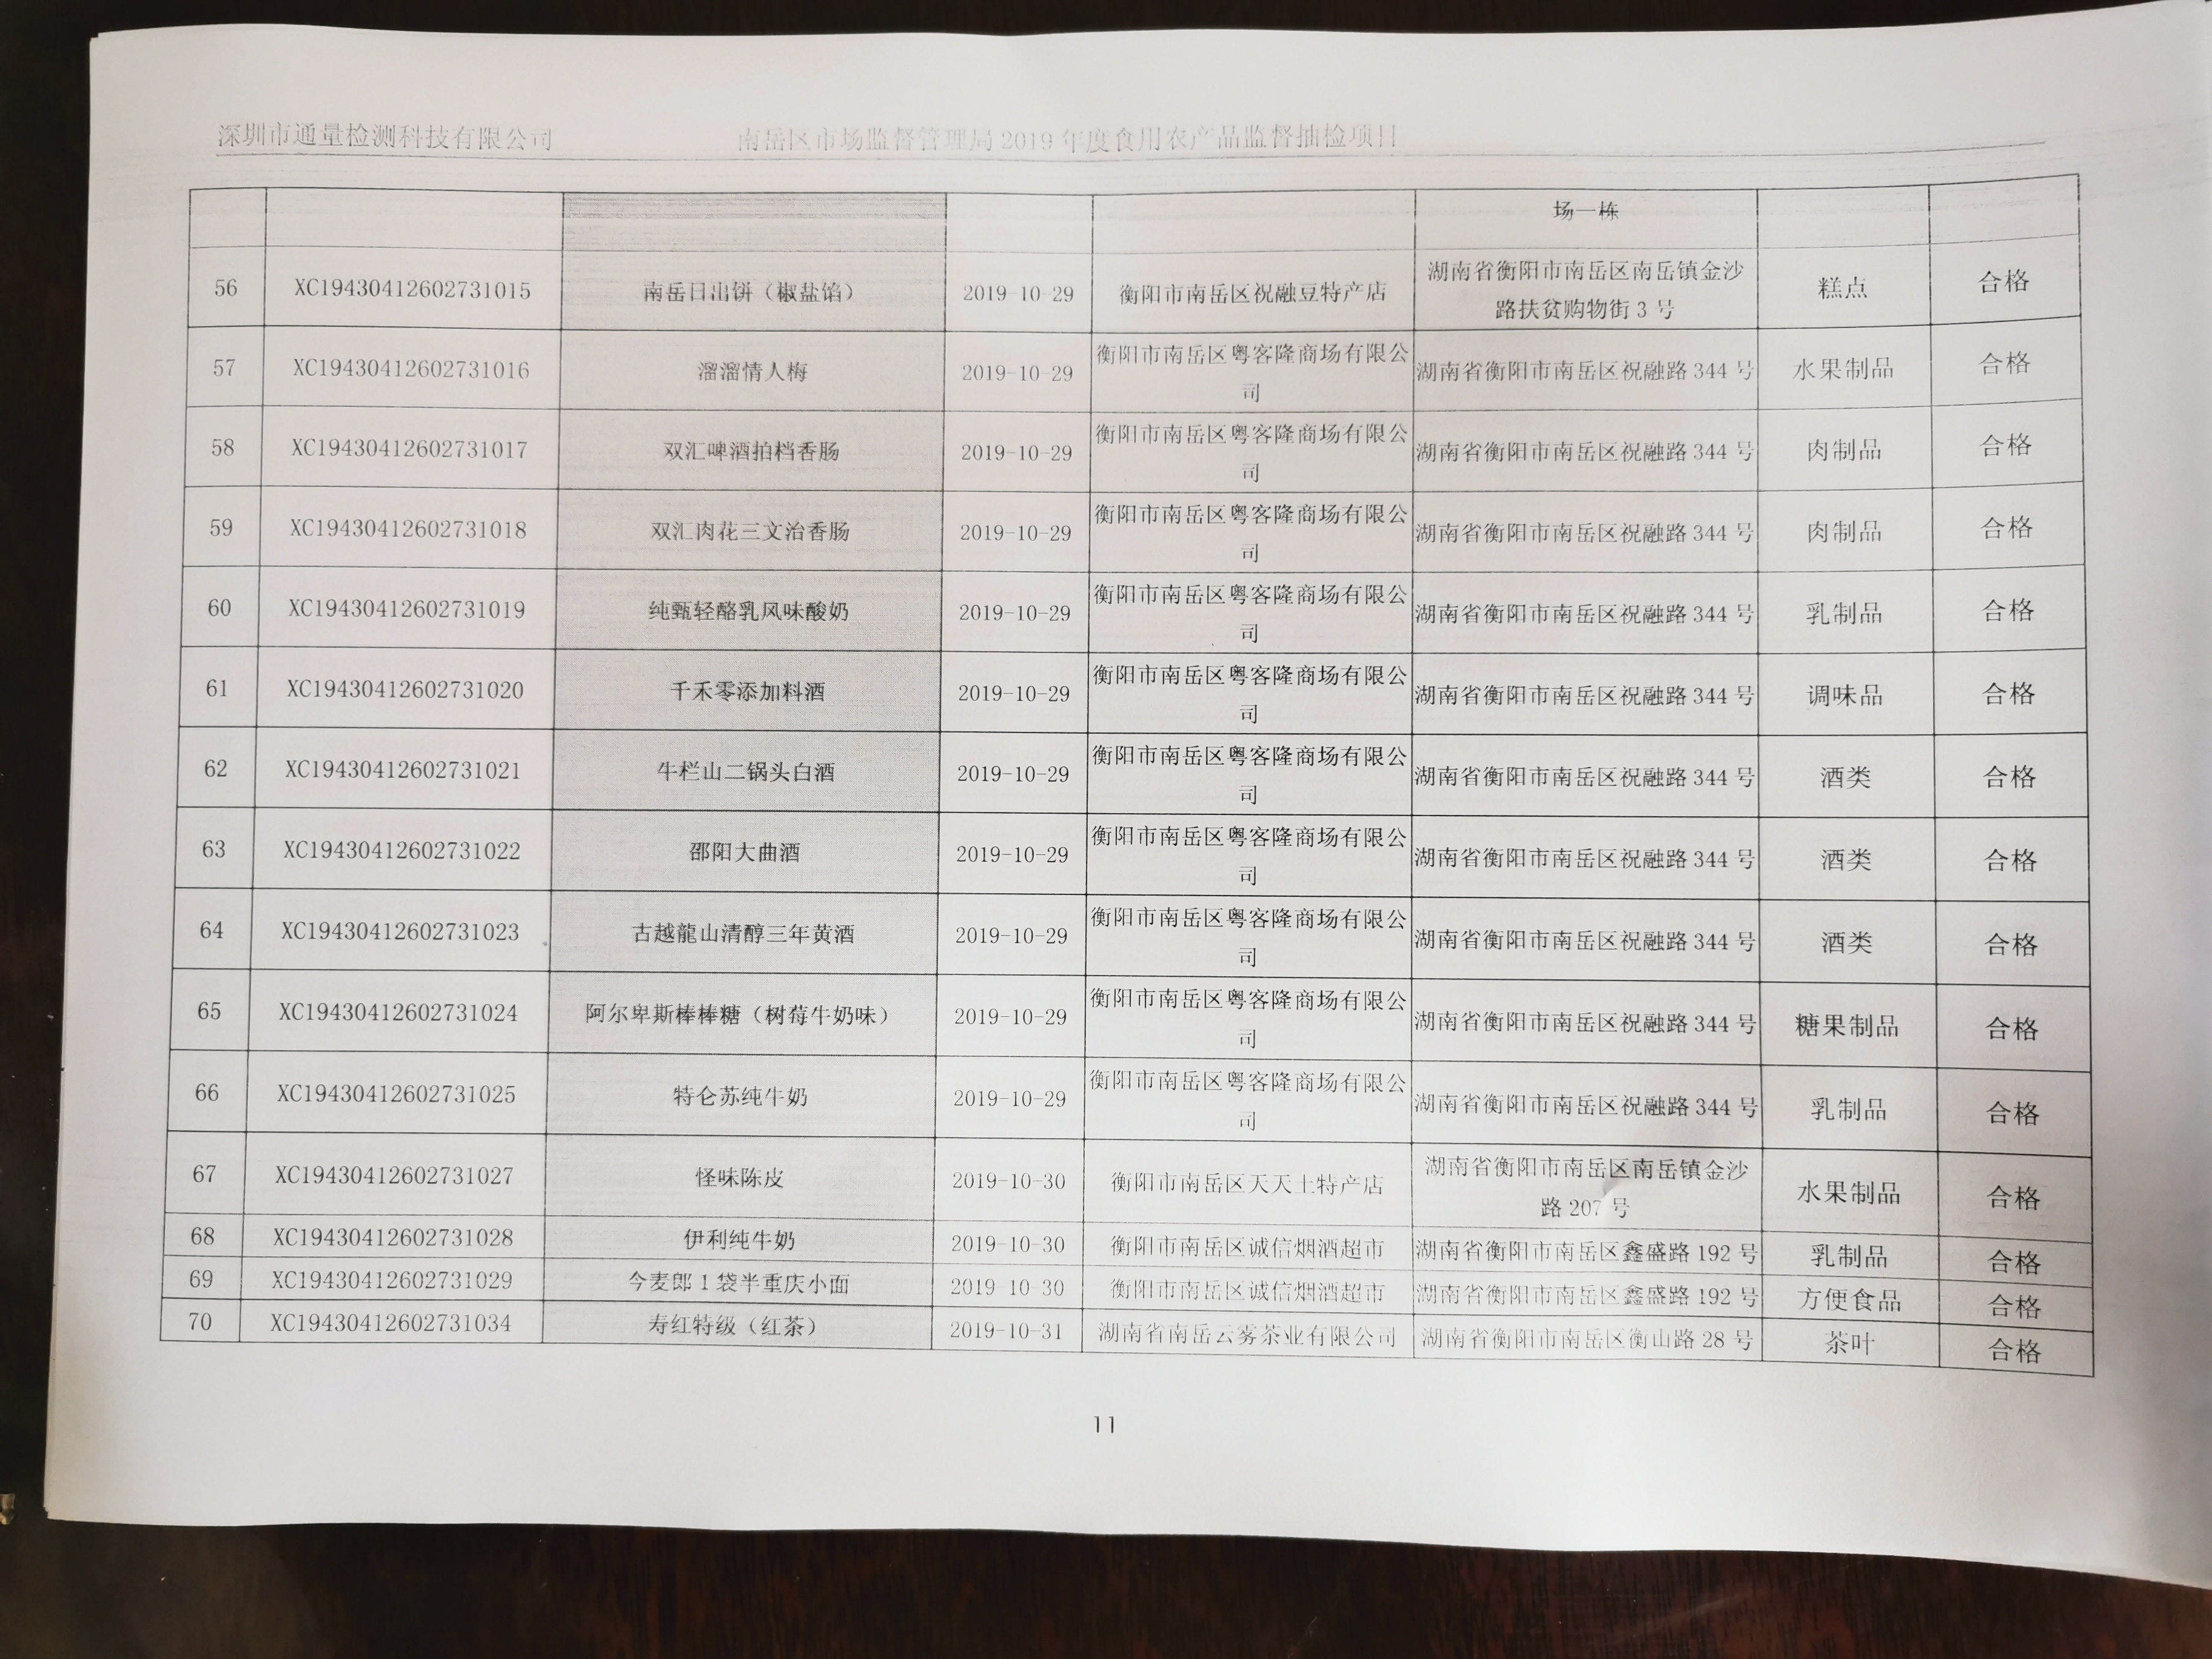 深圳市通量检测科技有限公司 南岳区市场监督管理局 2019 年度食用农产品监督抽检项目
场一栋
56 XC19430412602731015 南岳日出饼（椒盐馅） 2019-10-29 衡阳市南岳区祝融豆特产店 湖南省衡阳市南岳区南岳镇金沙
路扶贫购物街 3 号 糕点 合格
57 XC19430412602731016 溜溜情人梅 2019-10-29 衡阳市南岳区粤客隆商场有限公
司 湖南省衡阳市南岳区祝融路 344 号 水果制品 合格
58 XC19430412602731017 双汇啤酒拍档香肠 2019-10-29 衡阳市南岳区粤客隆商场有限公
司 湖南省衡阳市南岳区祝融路 344 号 肉制品 合格
59 XC19430412602731018 双汇肉花三文治香肠 2019-10-29 衡阳市南岳区粤客隆商场有限公
司 湖南省衡阳市南岳区祝融路 344 号 肉制品 合格
60 XC19430412602731019 纯甄轻酪乳风味酸奶 2019-10-29 衡阳市南岳区粤客隆商场有限公
司 湖南省衡阳市南岳区祝融路 344 号 乳制品 合格
61 XC19430412602731020 千禾零添加料酒 2019-10-29 衡阳市南岳区粤客隆商场有限公
司 湖南省衡阳市南岳区祝融路 344 号 调味品 合格
62 XC19430412602731021 牛栏山二锅头白酒 2019-10-29 衡阳市南岳区粤客隆商场有限公
司 湖南省衡阳市南岳区祝融路 344 号 酒类 合格
63 XC19430412602731022 邵阳大曲酒 2019-10-29 衡阳市南岳区粤客隆商场有限公
司 湖南省衡阳市南岳区祝融路 344 号 酒类 合格
64 XC19430412602731023 古越龍山清醇三年黄酒 2019-10-29 衡阳市南岳区粤客隆商场有限公
司 湖南省衡阳市南岳区祝融路 344 号 酒类 合格
65 XC19430412602731024 阿尔卑斯棒棒糖（树莓牛奶味） 2019-10-29 衡阳市南岳区粤客隆商场有限公
司 湖南省衡阳市南岳区祝融路 344 号 糖果制品 合格
66 XC19430412602731025 特仑苏纯牛奶 2019-10-29 衡阳市南岳区粤客隆商场有限公
司 湖南省衡阳市南岳区祝融路 344 号 乳制品 合格
67 XC19430412602731027 怪味陈皮 2019-10-30 衡阳市南岳区天天土特产店 湖南省衡阳市南岳区南岳镇金沙
路 207 号 水果制品 合格
68 XC19430412602731028 伊利纯牛奶 2019-10-30 衡阳市南岳区诚信烟酒超市 湖南省衡阳市南岳区鑫盛路 192 号 乳制品 合格
69 XC19430412602731029 今麦郎 1 袋半重庆小面 2019-10-30 衡阳市南岳区诚信烟酒超市 湖南省衡阳市南岳区鑫盛路 192 号 方便食品 合格
70 XC19430412602731034 寿红特级（红茶） 2019-10-31 湖南省南岳云雾茶业有限公司 湖南省衡阳市南岳区衡山路 28 号 茶叶 合格
11